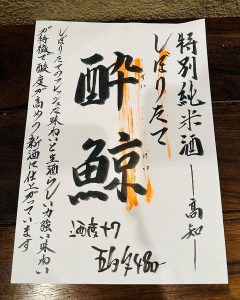 特別純米酒―高知―
しぼりたて
酔鯨
すい げい
酒度+7
五勺¥480-
しぼりたてのフレッシュな味わいと生酒らしい力強い味わい
が特徴で酸度が高めの新酒に仕上がっています